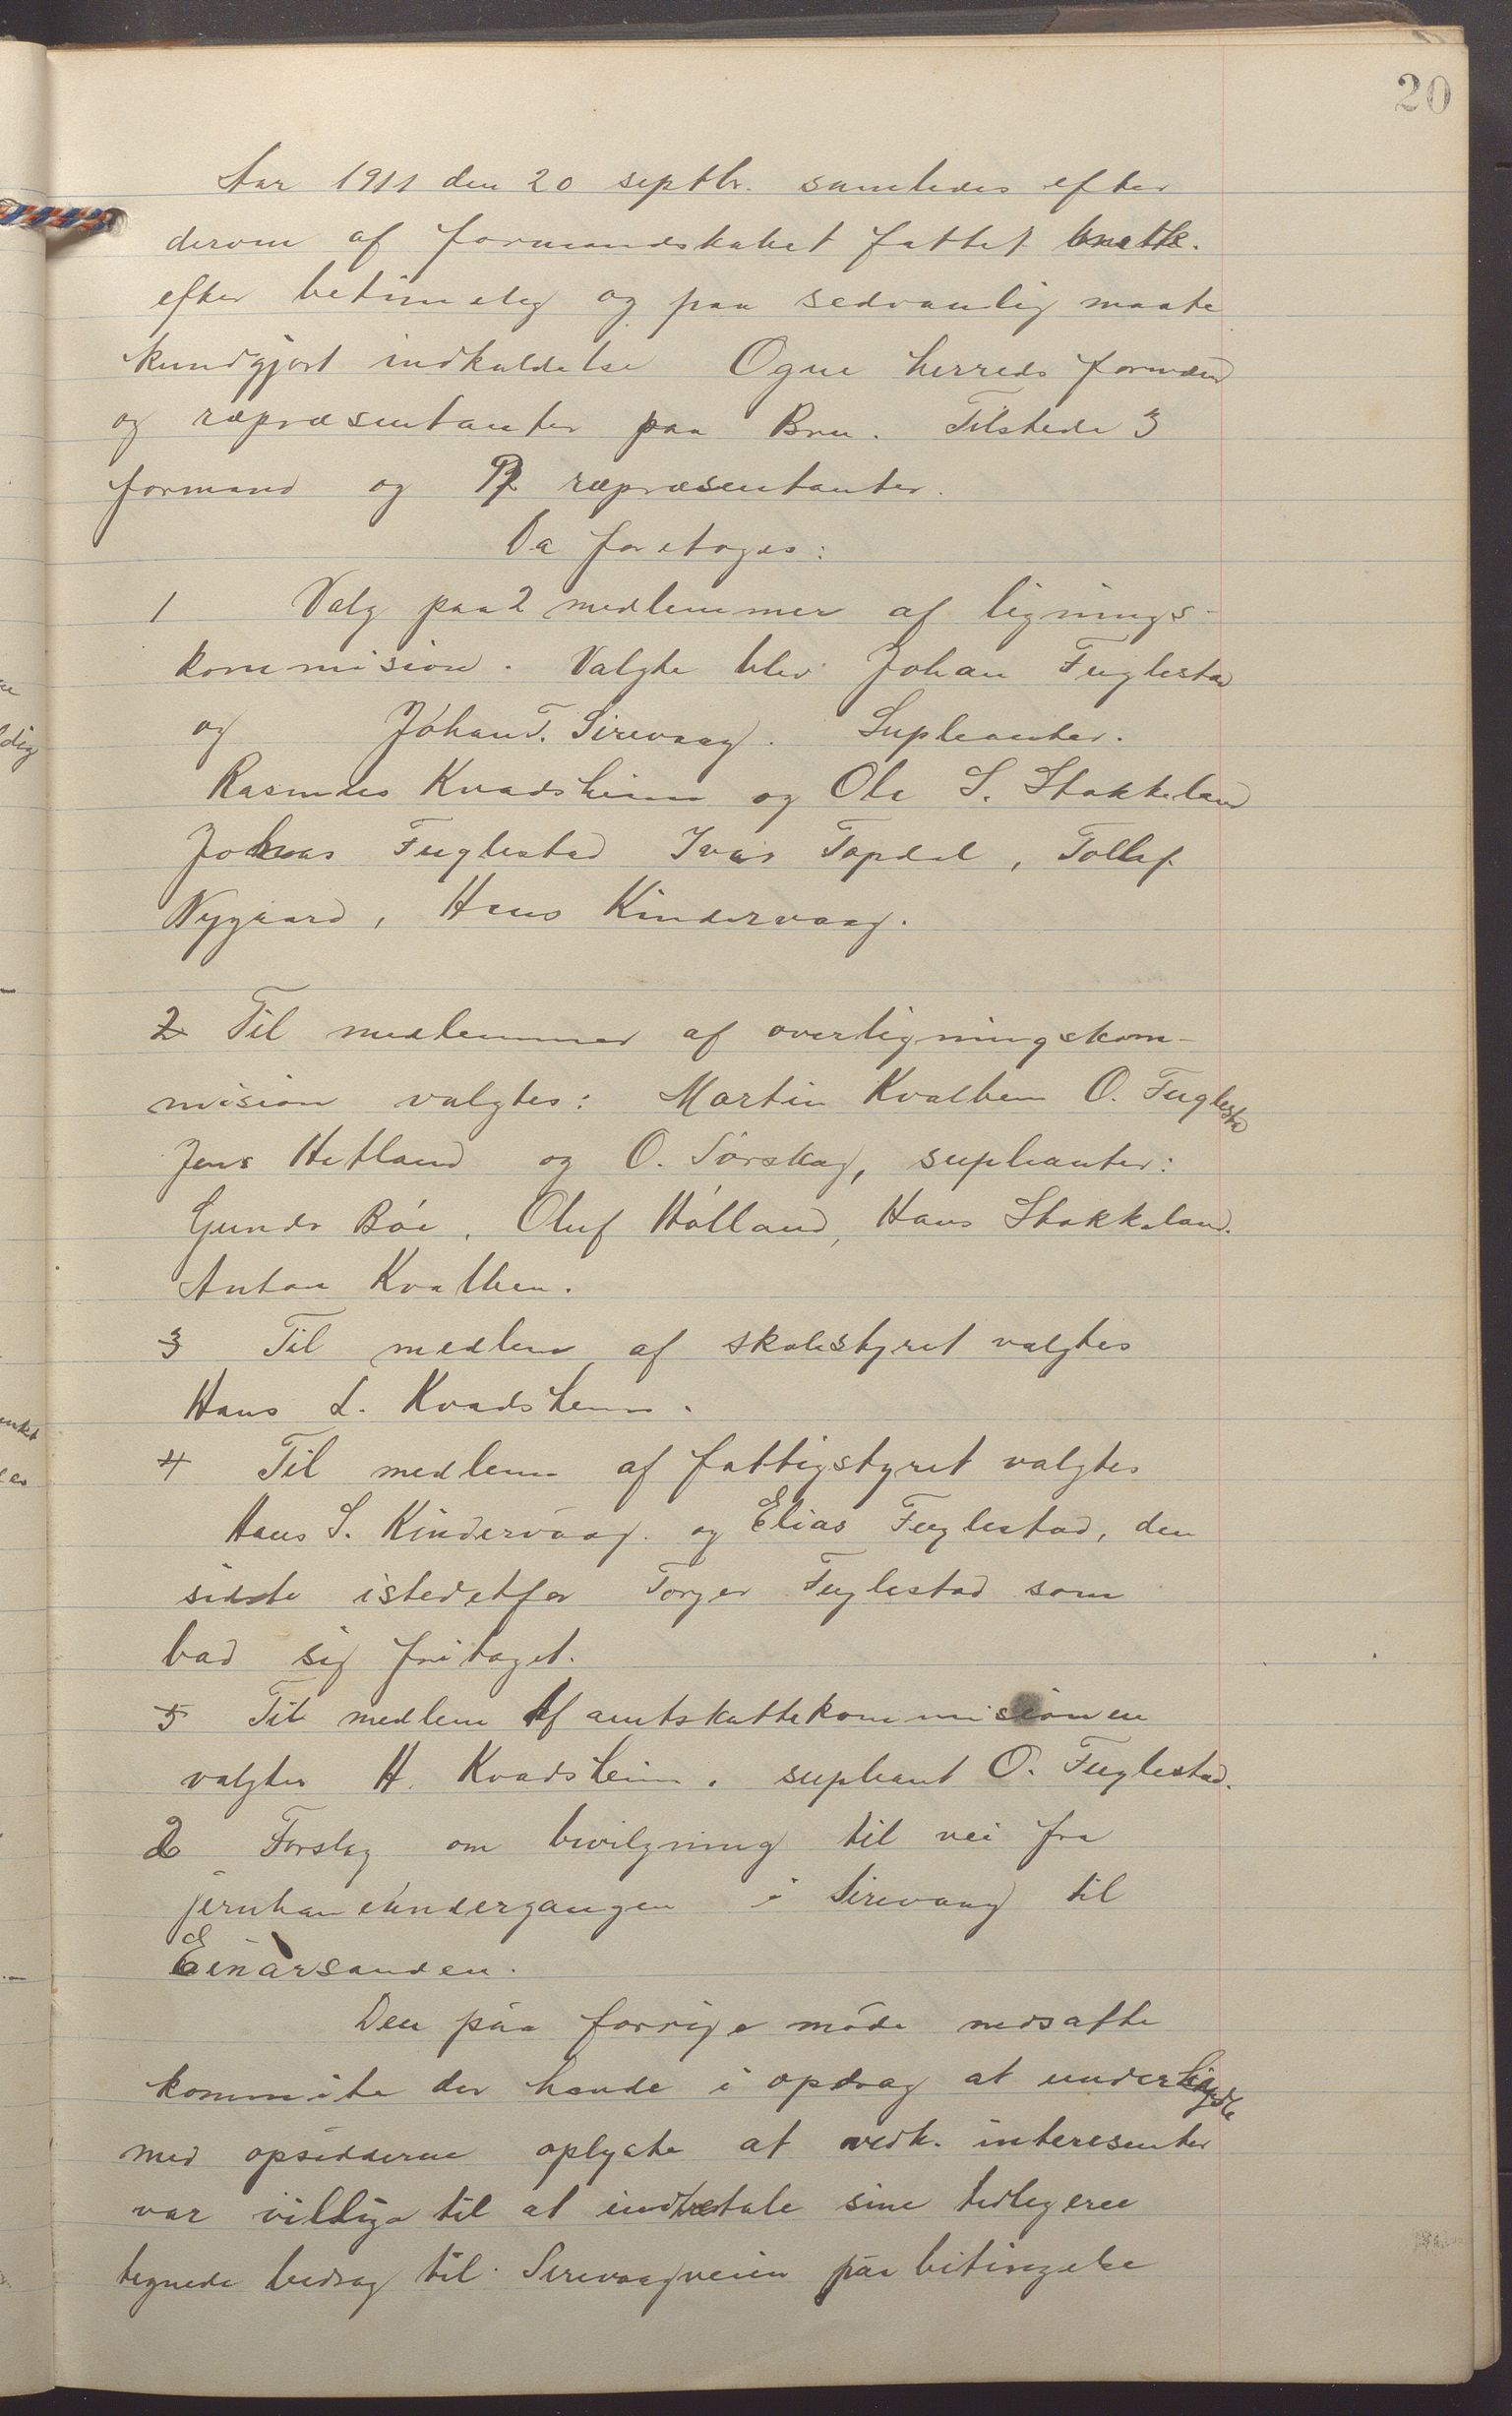 20
Aar 1911 den 20 septbr. samledes efter
derom af formandskabet fattet
efter betimelig og paa sedvanlig maate
kundgjort indkaldelse Ogne herreds formænd
og repræsentanter paa Bru. Tilstede 3
formænd og repræsentanter.
Da foretoges:
1 Valg paa 2 medlemmer af lignings-
kommision. Valgte blev Johan Fuglestad
og Johan T. Sirevaag. Supleanter.
Rasmus Kvadsheim og Ole S. Stokkeland
Johnas Fuglestad Ivar Topdal, Tollef
Nygaard, Hans Kindervaag.
2 Til medlemmer af overligningskom-
mision valgtes: Martin Kvalben O. Fuglestad
Jens Hetland og O. Sørskog, supleanter:
Gunder Bøe, Oluf Hølland, Hans Stokkeland.
Anton Kvalben.
3 Til medlem af skolestyret valgtes
Hans L. Kvadsheim.
4 Til medlem af fattigstyret valgtes
Hans S. Kindervaag. og Elias Fuglestad, den
sidste istedetfor Torger Fuglestad som
bad sig fritaget.
5 Til medlem af amtskattekommisionen
valgtes H. Kvadsheim. supleant O. Fuglestad.
6 Forslag om bevilgning til vei fra
jernbaneundergangen i Sirevaag til
Einarsanden.
Den paa forrige møde nedsatte
kommite der havde i opdrag at underhandle
med opsidderne oplyste at vedk. interesenter
var villige til at indbetale sine tidligere
tegnede bedrag til Sirevaagveien paa betingelse